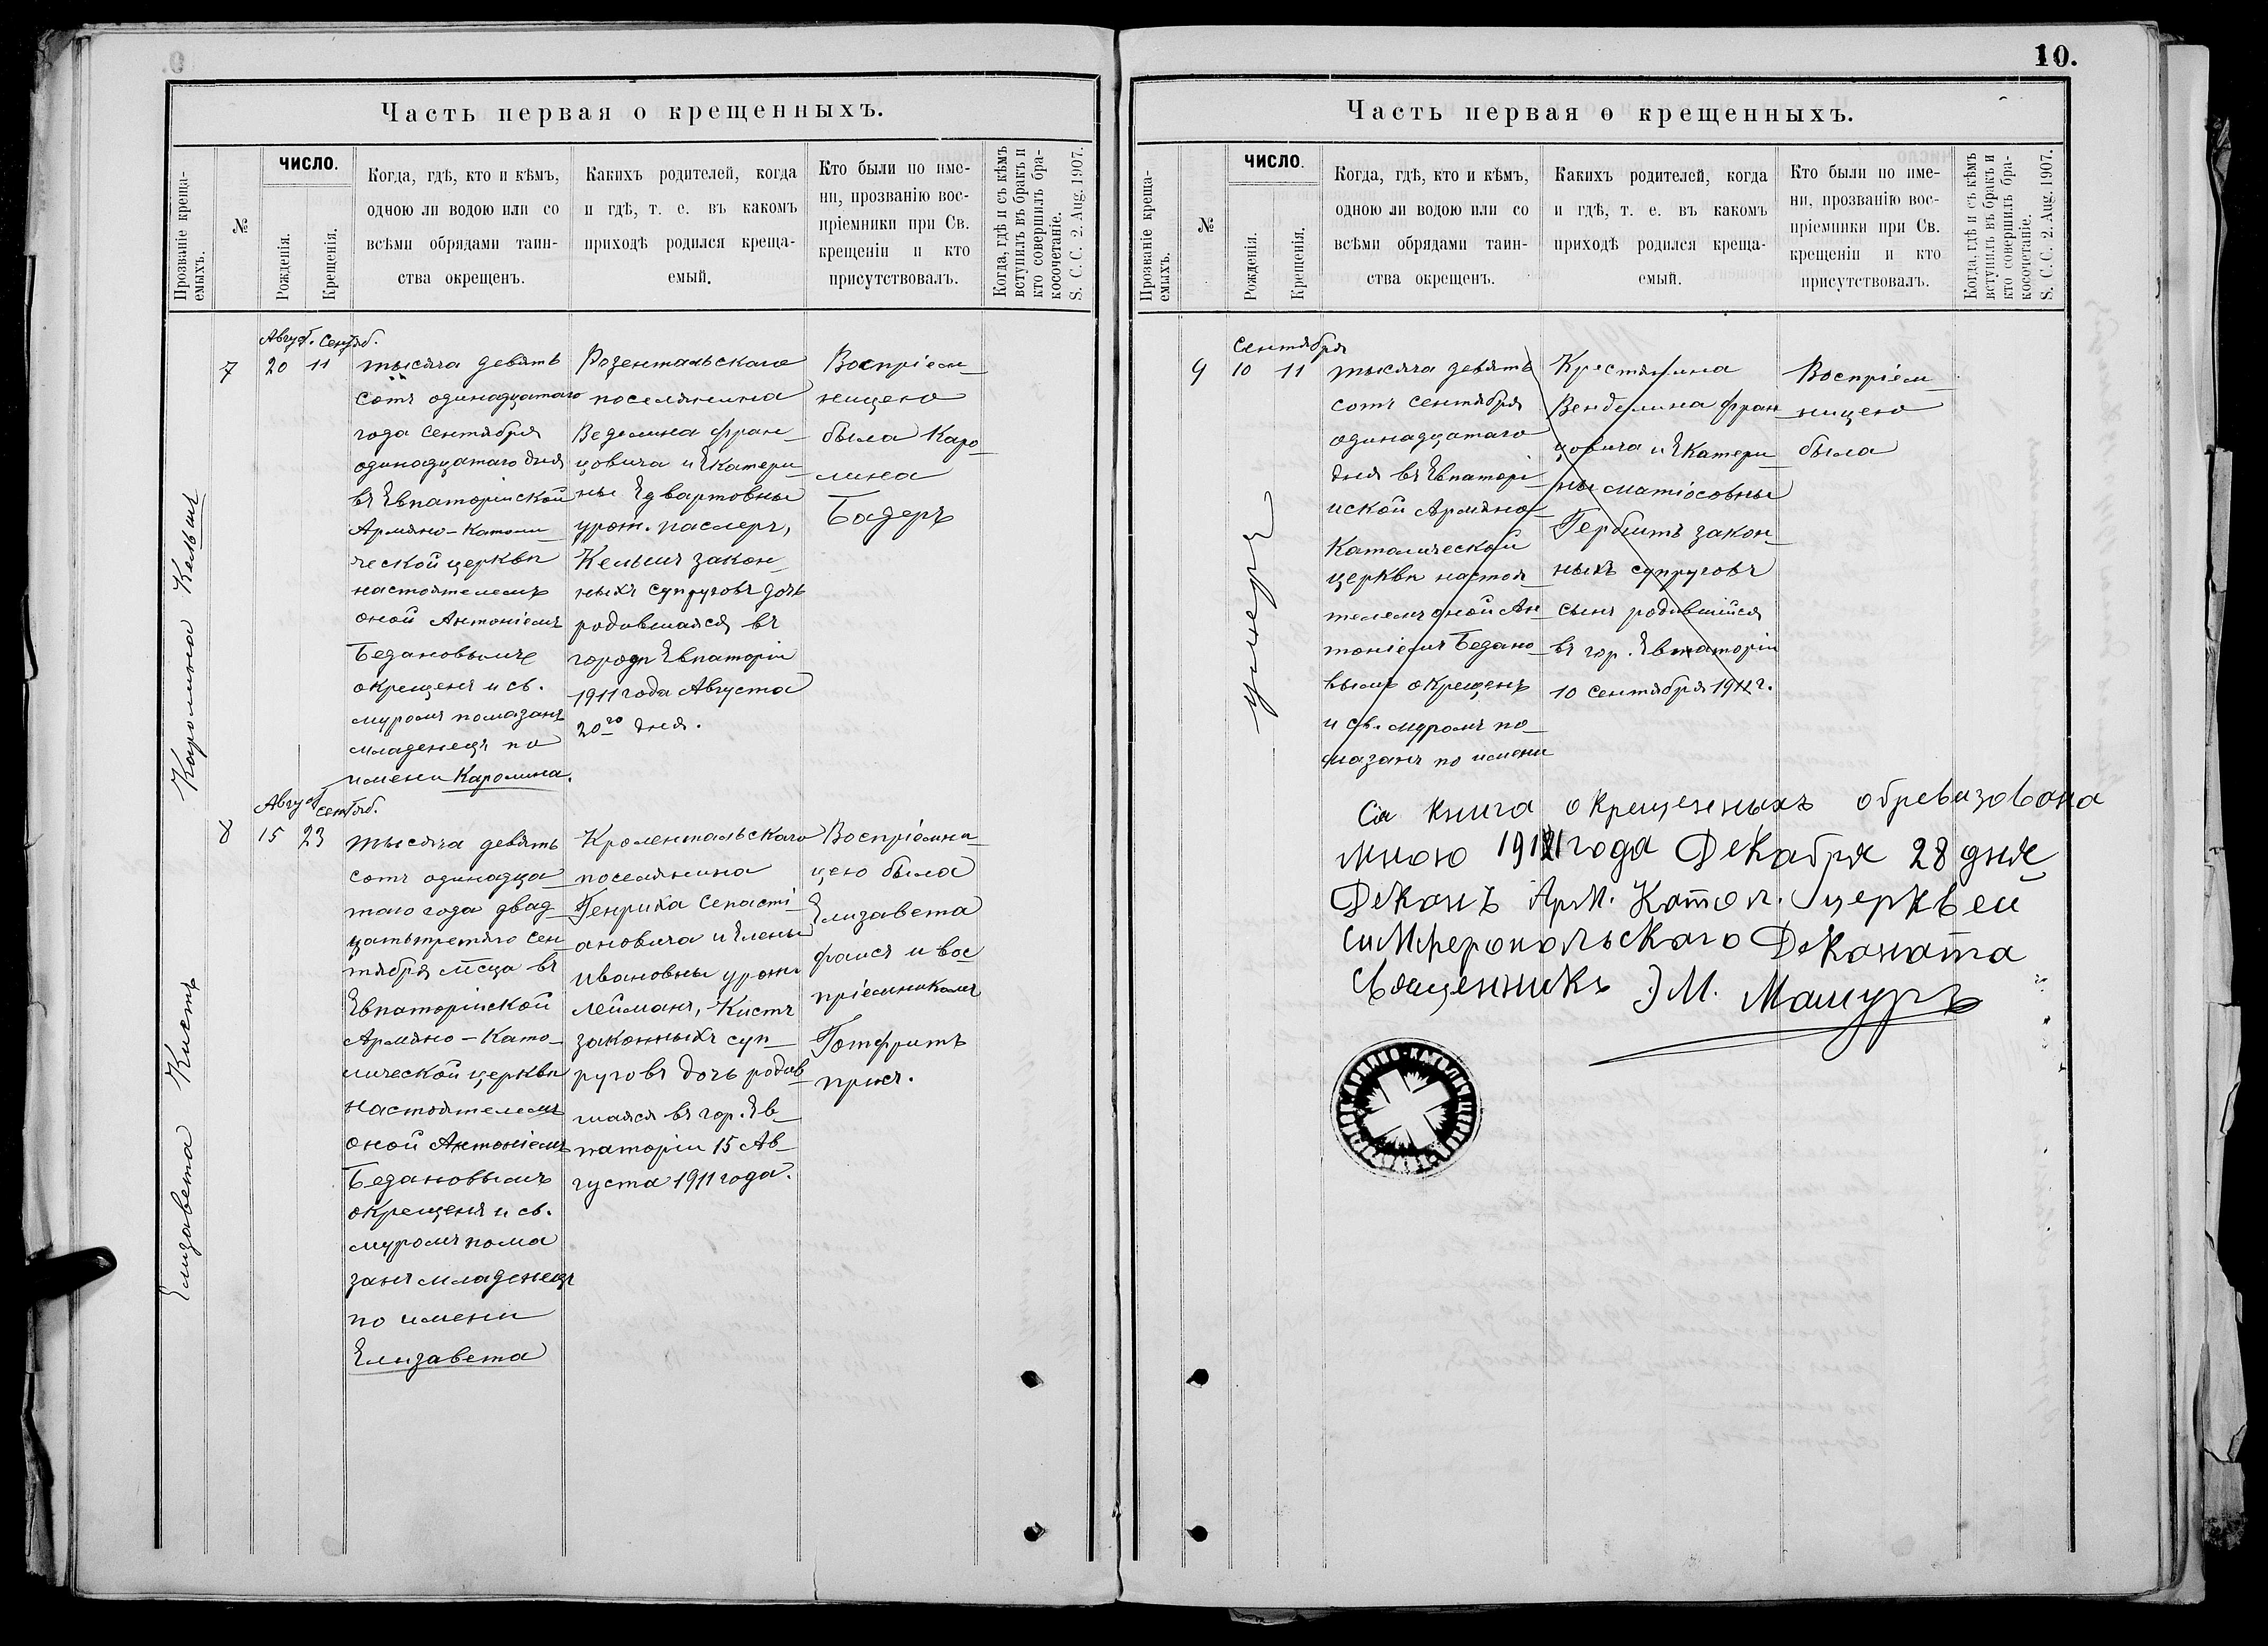 10.
Часть первая о крещенныхъ.
Прозваніе креща-
емыхъ.
№
ЧИСЛО.
Рожденія.
Крещенія.
Когда, гдѣ, кто и кѣмъ,
одною ли водою или со
всѣми обрядами таин-
ства окрещенъ.
Какихъ родителей, когда
и гдѣ, т. е. въ какомъ
приходѣ родился креща-
емый.
Кто были по име-
ни, прозванію вос-
пріемники при Св.
крещеніи и кто
присутствовалъ.
Когда, гдѣ и съ кѣмъ
вступилъ въ бракъ и
кто совершилъ бра-
косочетаніе.
S. C. C. 2. Aug. 1907.
Каролина
Август. Сентяб.
7
20 11
тысяча девять
сотъ одинадцатаго
года Сентября
одинадцатаго дня
въ Евпаторійской
Армяно-Католи
ческой церкви
настоятелемъ
оной Антоніемъ
Бедановымъ
окрещенъ и св.
муромъ помазанъ
младенецъ по
имени Каролина.
Розентальскаго
поселянина
Веделина Фран-
цовича и Екатери
ны Едвартовны
урож.
закон-
ныхъ супруговъ дочь
родившаяся въ
городѣ Евпаторіи
1911 года Августа
20го дня.
Воспріем-
ницею
была Каро-
лина
Бадеръ
Елизавета Кистъ
Август Сентяб.
8
15 23
тысяча девять
сотъ одинадца-
таго года двад
цатьтретяго Сен-
тября мсца въ
Евпаторійской
Армяно-Като-
лической церкви
настоятелемъ
оной Антоніемъ
Бедановымъ
окрещенъ и св.
муромъ пома
занъ младенецъ
по имени
Елизавета
Кронентальскаго
поселянина
Генриха Сепасті-
ановича и Елены
Ивановны урож.
Лейманъ, Кистъ
законныхъ суп-
руговъ дочь родив-
шаяся въ гор. Ев-
паторіи 15 Ав-
густа 1911 года.
Воспріемни-
цею была
Елизавета
и вос-
пріемникомъ
Готфритъ
Часть первая о крещенныхъ.
Прозваніе креща-
емыхъ.
№
ЧИСЛО.
Рожденія.
Крещенія.
Когда, гдѣ, кто и кѣмъ,
одною ли водою или со
всѣми обрядами таин-
ства окрещенъ.
Какихъ родителей, когда
и гдѣ, т. е. въ какомъ
приходѣ родился креща-
емый.
Кто были по име-
ни, прозванію вос-
пріемники при Св.
крещеніи и кто
присутствовалъ.
Когда, гдѣ и съ кѣмъ
вступилъ въ бракъ и
кто совершилъ бра-
косочетаніе.
S. C. C. 2. Aug. 1907.
умеръ
Сентября
9
10 11
тысяча девять
сотъ Сентября
одинадцатаго
дня въ Евпаторі
йской Армяно-
Католической
церкви настоя
телемъ оной Ан
тоніемъ Бедано
вымъ окрещенъ
и св. муромъ по-
мазанъ по имени
Крестянина
Венделина Фран
цовича и Екатери-
ны Матіосовны
Гербитъ закон-
ныхъ супруговъ
сынъ родившійся
въ гор. Евпаторіи
10 Сентября 1911 г.
Воспріем-
ницею
была
Сія книга окрещенныхъ обревизована
мною 1911 года Декабря 28 дня
Деканъ Арм. Катол. церквей
Симферопольскаго Деканата
Священникъ Э М. Машуръ